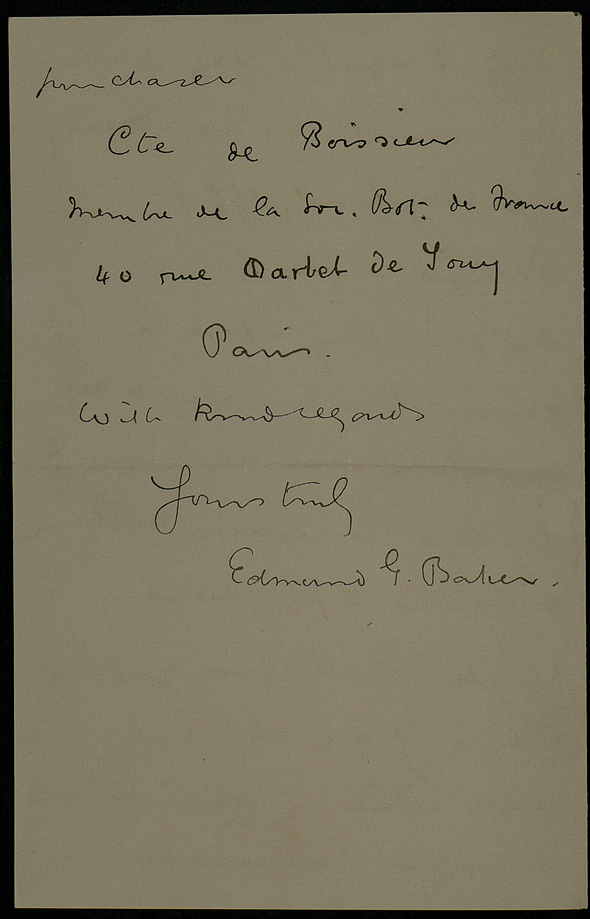 purchaser
Cte de Boissieu
Membre de la Soc. Bot. de France
40 rue Barbet de Jouy
Paris.
With kind regards
Yours truly
Edmund G. Baker.